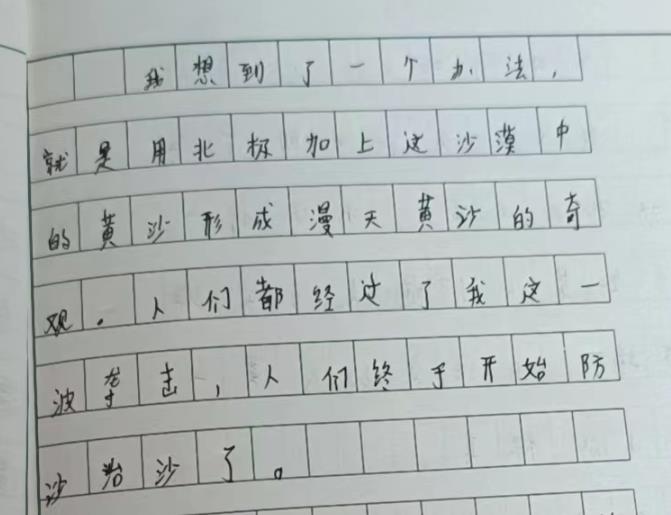 我想到了一个办法，
就是用北极加上这沙漠中
的黄沙形成漫天黄沙的奇
观。人们都经过了我这一
波李击，人们终于开始防
沙治沙了。